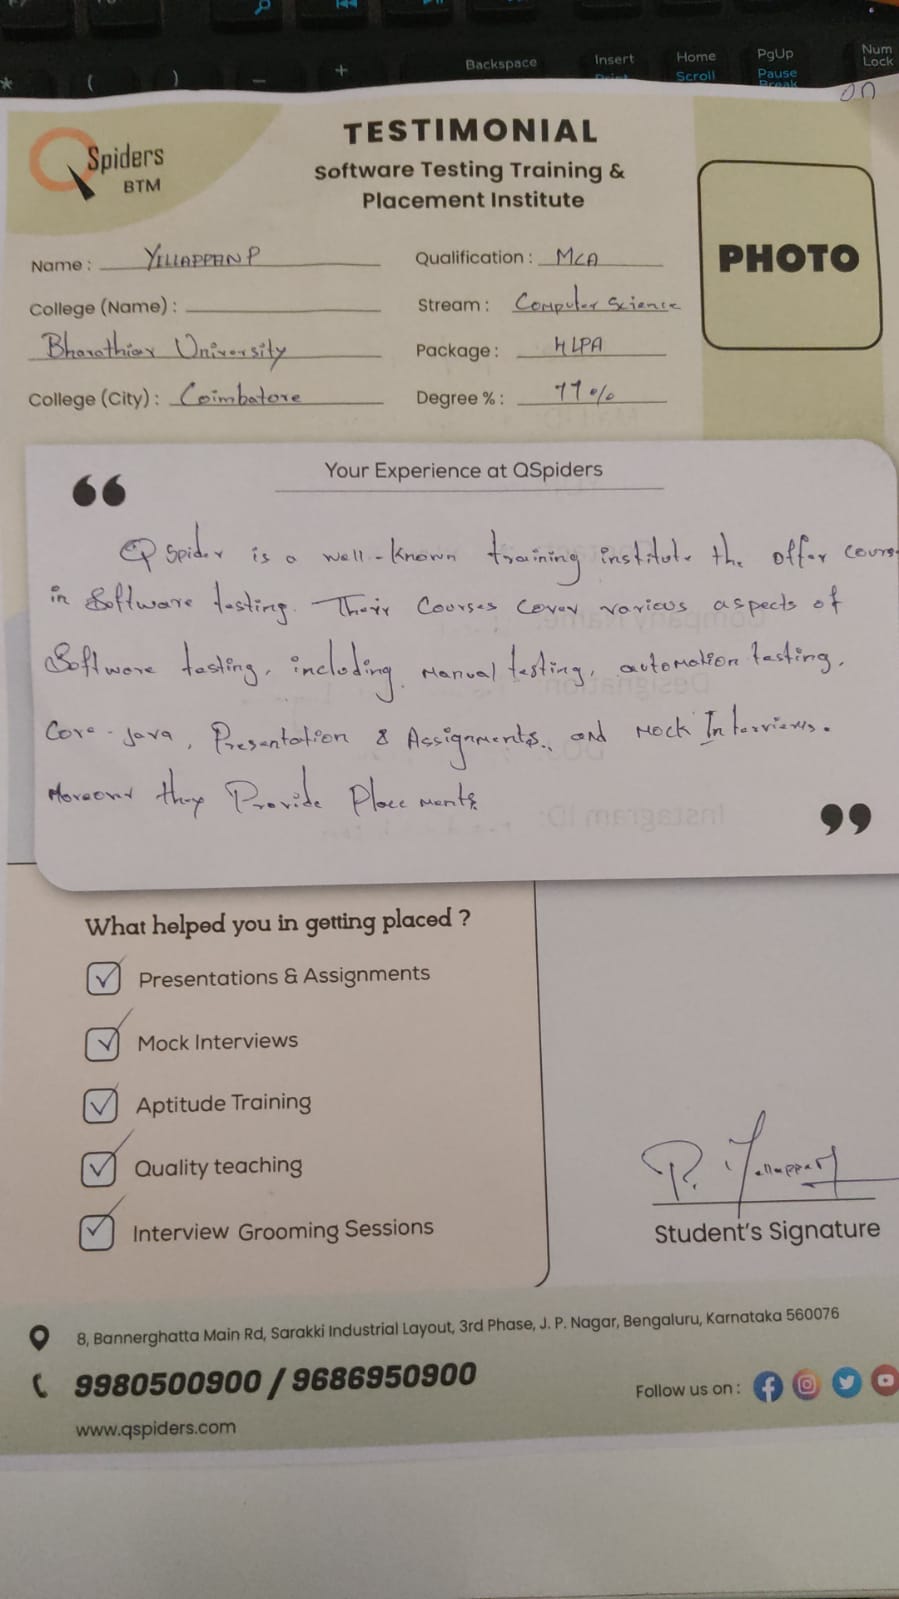 Backspace
Insert
Home
PgUp
Num
Lock
Scroll
Pause
Break
on
QSpiders
BTM
TESTIMONIAL
Software Testing Training &
Placement Institute
PHOTO
Name : YELLAPPAN P
Qualification : MCA
College (Name) :
Stream : Computer Science
Bharathiar University
Package : 4 LPA
College (City) : Coimbatore
Degree % : 77%
Your Experience at QSpiders
QSpider is a well-known training institute the offer cours
in Software testing. Their Courses cover various aspects of
Software testing, including Manual testing, automation testing,
Core-java, Presentation & Assignments., and Mock Interviews.
Moreover they Provide Placements
What helped you in getting placed ?
Presentations & Assignments
Mock Interviews
Aptitude Training
Quality teaching
Interview Grooming Sessions
P. Yellappan
Student's Signature
8, Bannerghatta Main Rd, Sarakki Industrial Layout, 3rd Phase, J. P. Nagar, Bengaluru, Karnataka 560076
9980500900 / 9686950900
Follow us on :
www.qspiders.com